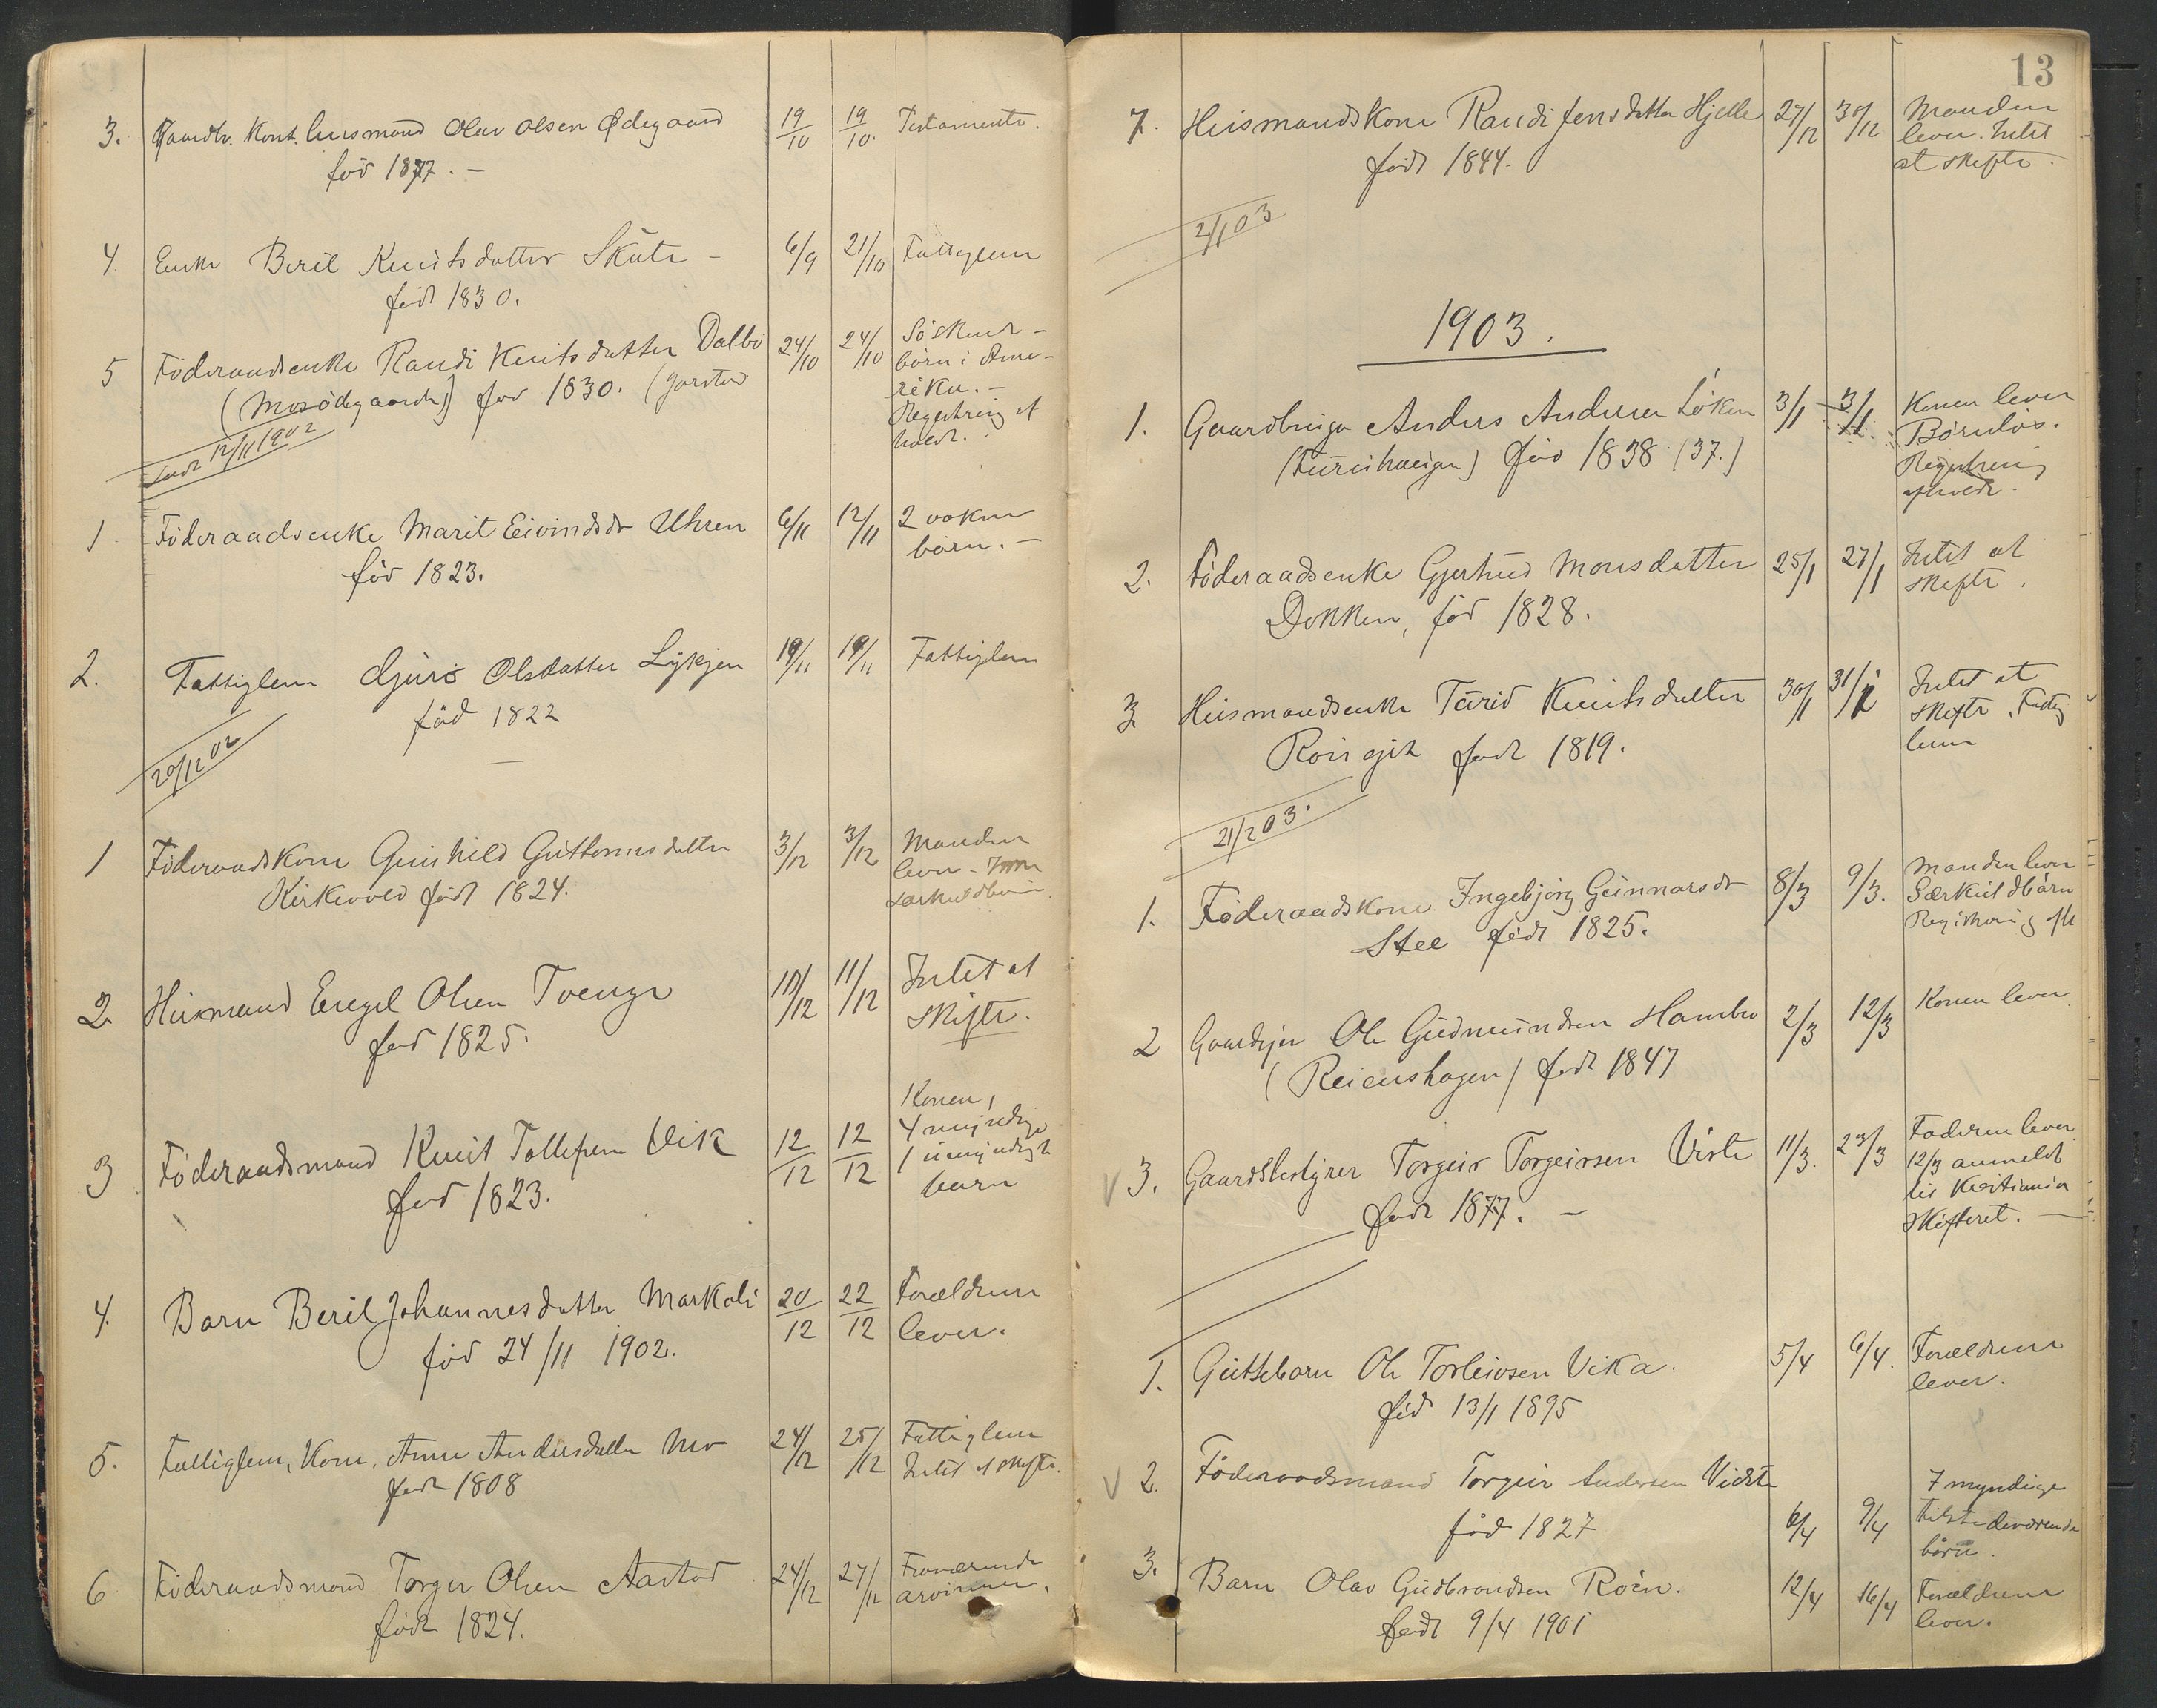 3. Gaardbr. Kont. husmand Olav Olsen Ødegaard 19/10 19/10. Testamente.
fød 1877. –
4. Enke Berit Knutsdatter Skute – 6/9 21/10 Fattiglem
født 1830.
5 Föderaadsenke Randi Knutsdatter Dalbö 24/10 24/10 Söskend-
börn i Ame-
rika. –
(Mosödegaarden) föd 1830. (Jarstad
Registrering af
holdt.
Sendt 12/11 1902
1 Föderaadsenke Marit Eivindsdr Uhren 6/11 12/11 2 voksne
börn. –
föd 1823.
2. Fattiglem Gjurö Olsdatter Lykjen 19/11 19/11 Fattiglem
föd 1822
20/12 02
1 Föderaadskone Gunhild Guttormsdatter 3/12 3/12 Manden
lever.
særkuldbørn.
Kirkevold född 1824.
2. Husmand Engel Olsen Tvenge 10/12 11/12 Intet at
skifte.
fød 1825.
3 Föderaadsmand Knut Tollefsen Vik 12/12 12/12 Konen,
4 myndige
1 umyndigt
barn
fød 1823.
4. Barn Berit Johannesdatter Markali 20/12 22/12 Forældrene
lever.
föd 24/11 1902.
5. Fattiglem, Kone, Anne Andersdatter Mo 24/12 25/12 Fattiglem
Intet at skifte.
født 1808
6 Föderaadsmand Torger Olsen Aastad 24/12 27/12 Fraværende
arvinger.
födt 1824.
13
7. Husmandskone Randi Jensdatter Hjelle 27/12 30/12 Manden
lever. Intet
at skifte.
född 1844.
2/1 03
1903.
1. Gaardbruger Anders Andersen Löken 3/1 3/1. Konen lever
Börnløs.
Registrering
afholdt.
föd 1838 (37.)
2. Föderaadsenke Gjertrud Monsdatter 25/1 27/1 Intet at
skifte.
Dokken, föd 1828.
3 Husmandsenke Turid Knutsdatter 30/1 31/1 Intet at
skifte, Fattig
lem
født 1819.
21/2 03.
1. Föderaadskone Ingebjörg Gunnarsdr 8/3 9/3. Manden lever
Særkuldbörn
Registrering afh
Stee födt 1825.
2 Gaardejer Ole Gudmundsen Hambro 2/3 12/3 Konen lever
(Reienshagen) født 1847
3. Gaardsbestyrer Torgeir Torgeirsen Viste 11/3. 23/3 Faderen lever
12/3 anmeldt
til Kristiania
Skifteret. –
født 1877. –
1. Guttebarn Ole Torleivsen Vika. 5/4 6/4. Forældrene
lever.
fød 13/1 1895
2. Föderaadsmand Torgeir Andersen Viste
7 myndige
föd 1827 6/4 9/4 tilstedeværende
börn.
3. Barn Olav Gudbrandsen Roen. 12/4 16/4 Forældrene
lever.
född 9/4 1901